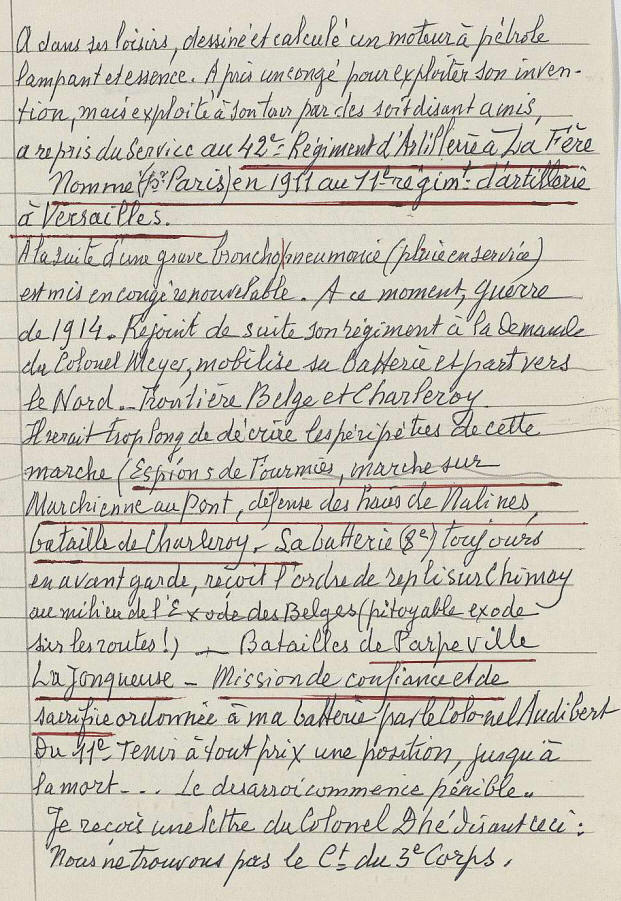 A dans ses loisirs, dessiné et calculé un moteur à pétrole
lampant et essence. A pris un congé pour exploiter son inven-
tion, mais exploité à son tour par des soit disant amis,
a repris du service au 42e Régiment d'Artillerie à La Fère
Nommé (pr Paris) en 1911 au 11e régimt d'artillerie
à Versailles.
A la suite d'une grave broncho/pneumonie (pluie en service)
est mis en congé renouvelable. A ce moment, guerre
de 1914. Rejoint de suite son régiment à la demande
du Colonel Meyer, mobilise sa Batterie et part vers
le Nord - Frontière Belge et Charleroy
Il serait trop long de décrire les péripéties de cette
marche (Espions de Fourmies, marche sur
Marchienne au Pont, défense des haies de Malines,
bataille de Charleroy. Sa batterie (8e) toujours
en avant garde, reçoit l'ordre de repli sur Chimay
au milieu de l'Exode des Belges (pitoyable exode
sur les routes!) - Batailles de Parpeville
La Jonqueuse - Mission de confiance et de
sacrifice ordonnée à ma batterie par le Colonel Audibert
Du 11e. Tenir à tout prix une position, jusqu'à
la mort - . . . Le désarroi commence pénible..
Je reçois une lettre du Colonel Dhé disant ceci :
Nous ne trouvons pas le Ct du 3e Corps.